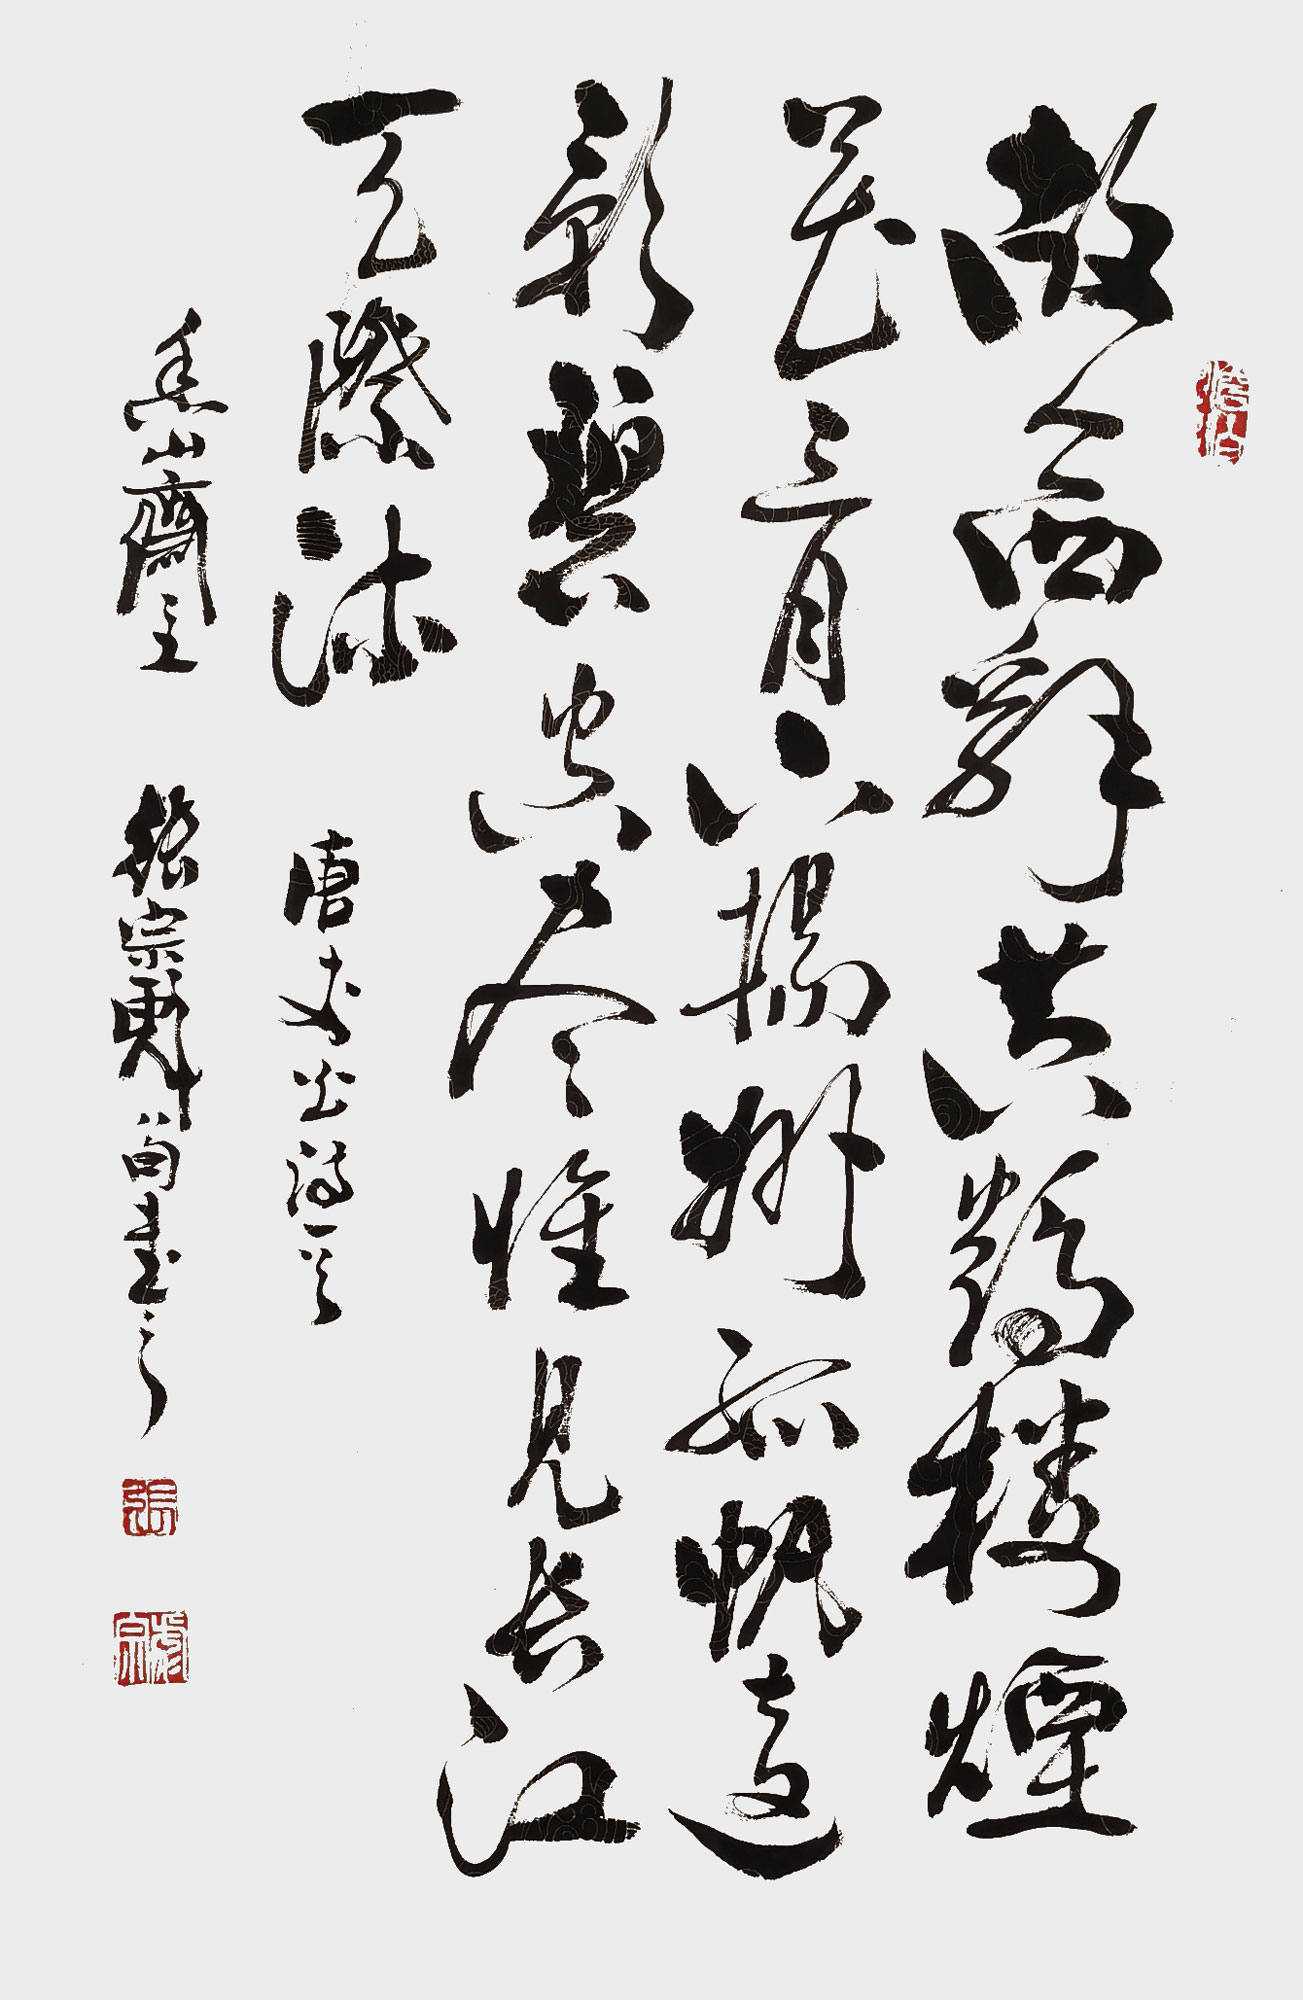 故人西辭黄鶴楼煙
花三月下揚州孤帆遠
影碧空尽惟見長江
天際流 唐李白詩一首
山齋主 張宗 書之
張